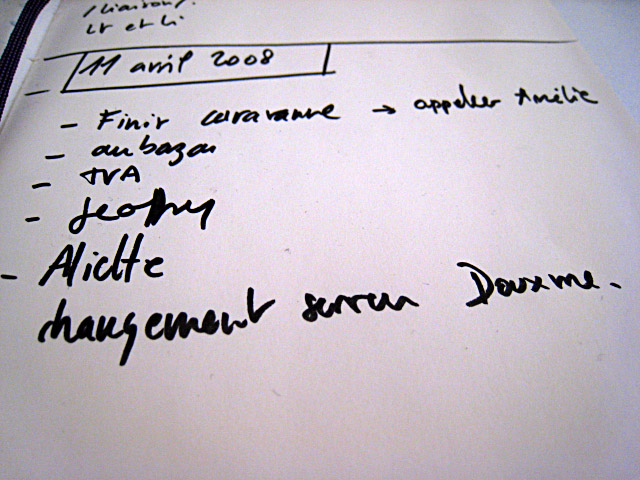 liaison,
et
11 avril 2008
- Finir caravanne → appeler Amélie
- aubazar
- TVA
- Geoffrey
- Aliette
changement serveur